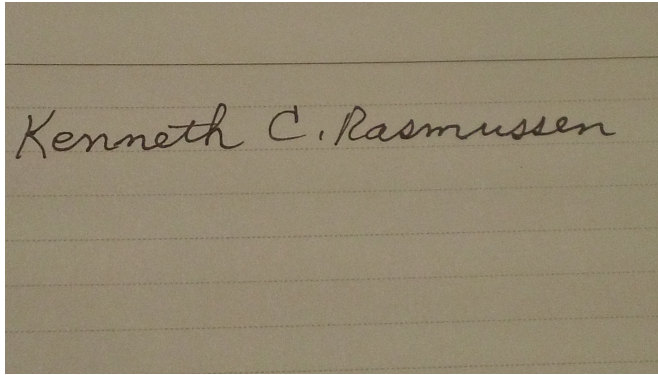 Kenneth C. Rasmussen